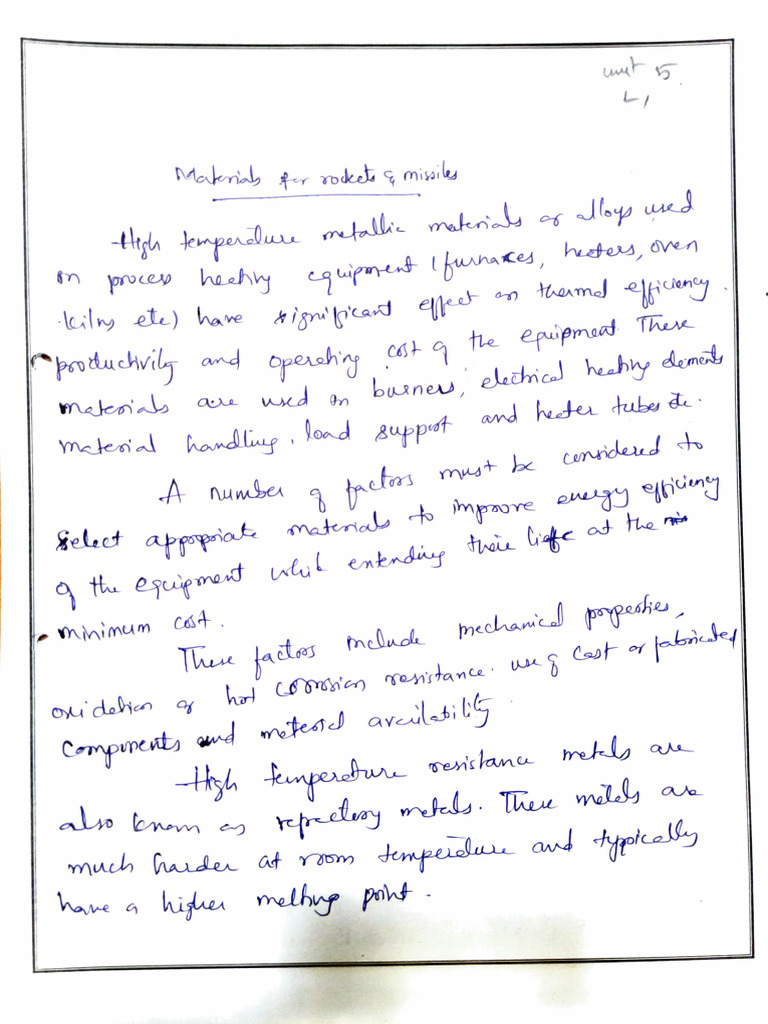 unit 5
L1
Materials for rockets & missiles
High temperature metallic materials or alloys used
in process heating equipment (furnaces, heaters, oven
kilns etc) have significant effect on thermal efficiency.
productivity and operating cost of the equipment. These
materials are used in burners, electrical heating elements
material handling, load support and heater tubes etc.
A number of factors must be considered to
select appropriate materials to improve energy efficiency
of the equipment while extending their life at the
minimum cost.
These factors include mechanical properties,
oxidation or hot corrosion resistance. use of cast or fabricated
components and material availability.
High temperature resistance metals are
also known as refractory metals. These metals are
much harder at room temperature and typically
have a higher melting point.